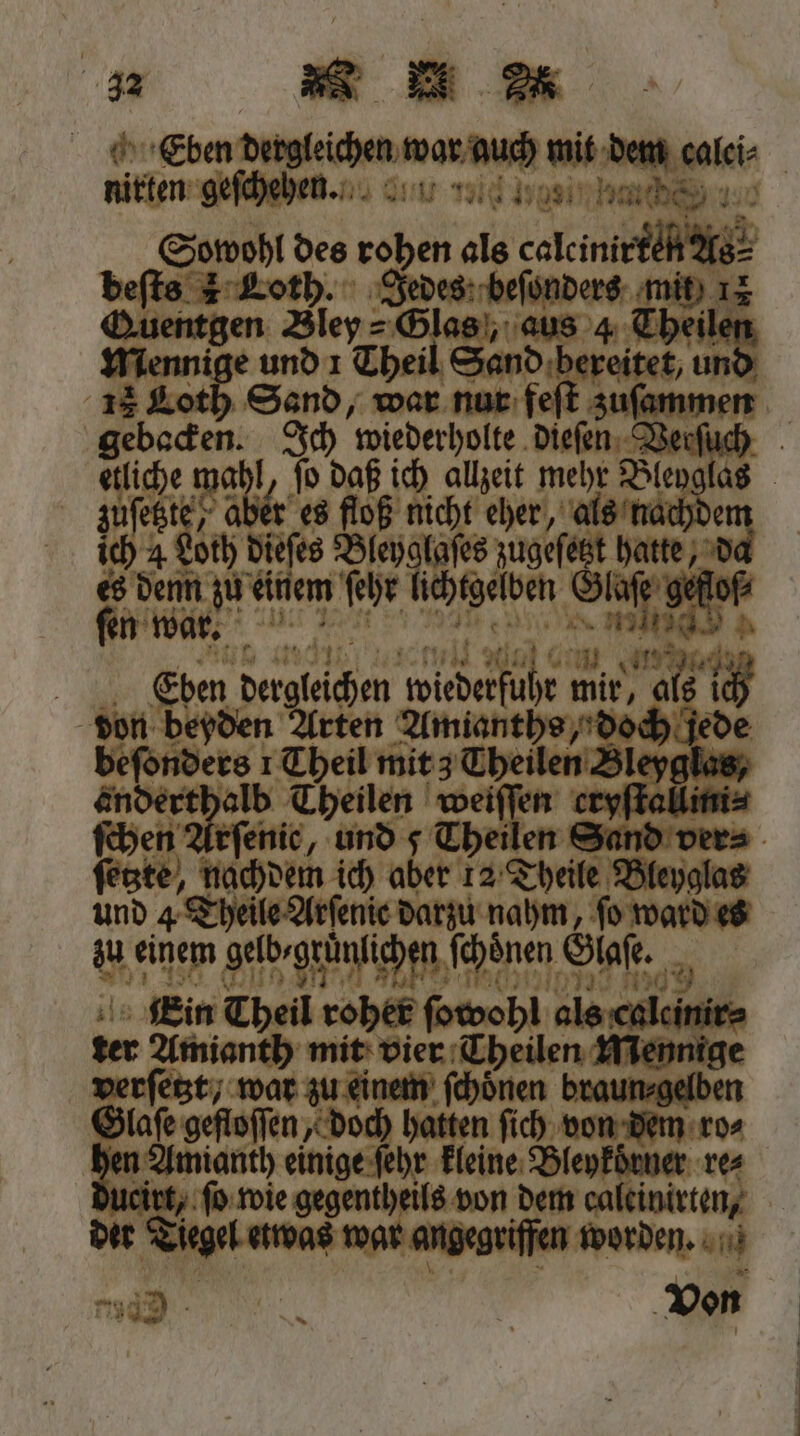 32
Eben dergleichen war auch mit dem calci⸗
nirten geſchehen.
Sowohl des rohen als calcinirten As⸗
beſts Loth. Jedes beſonders mit 1½
Quentgen Bley⸗Glas, aus 4 Theilen
Mennige und 1 Theil Sand bereitet, und
Loth Sand, war nur feſt zuſammen
gebacken. Ich wiederholte dieſen Verſuch
etliche mahl, ſo daß ich allzeit mehr Bleyglas
zuſetzte, aber es floß nicht eher, als nachdem
ich 4 Loth dieſes Bleyglaſes zugeſetzt hatte, da
es denn zu einem ſehr lichtgelben Glaſe gefloſ⸗
ſen war.
Eben dergleichen wiederfuhr mir, als ich
von beyden Arten Amianths, doch jede
beſonders 1 Theil mit 3 Theilen Bleyglas,
anderthalb Theilen weiſſen cryſtallini⸗
ſchen Arſenic, und 5 Theilen Sand ver⸗
ſetzte, nachdem ich aber 12 Theile Bleyglas
und 4 Theile Arſenic darzu nahm, ſo ward es
zu einem gelb⸗gruͤnlichen ſchoͤnen Glaſe.
Ein Theil roher ſowohl als calcinir⸗
ter Amianth mit vier Theilen Mennige
verſetzt, war zu einem ſchoͤnen braun⸗gelben
Glaſe gefloſſen, doch hatten ſich von dem ro⸗
hen Amianth einige ſehr kleine Bleykoͤrner re⸗
ducirt, ſo wie gegentheils von dem calcinirten,
der Tiegel etwas war angegriffen worden.
Von